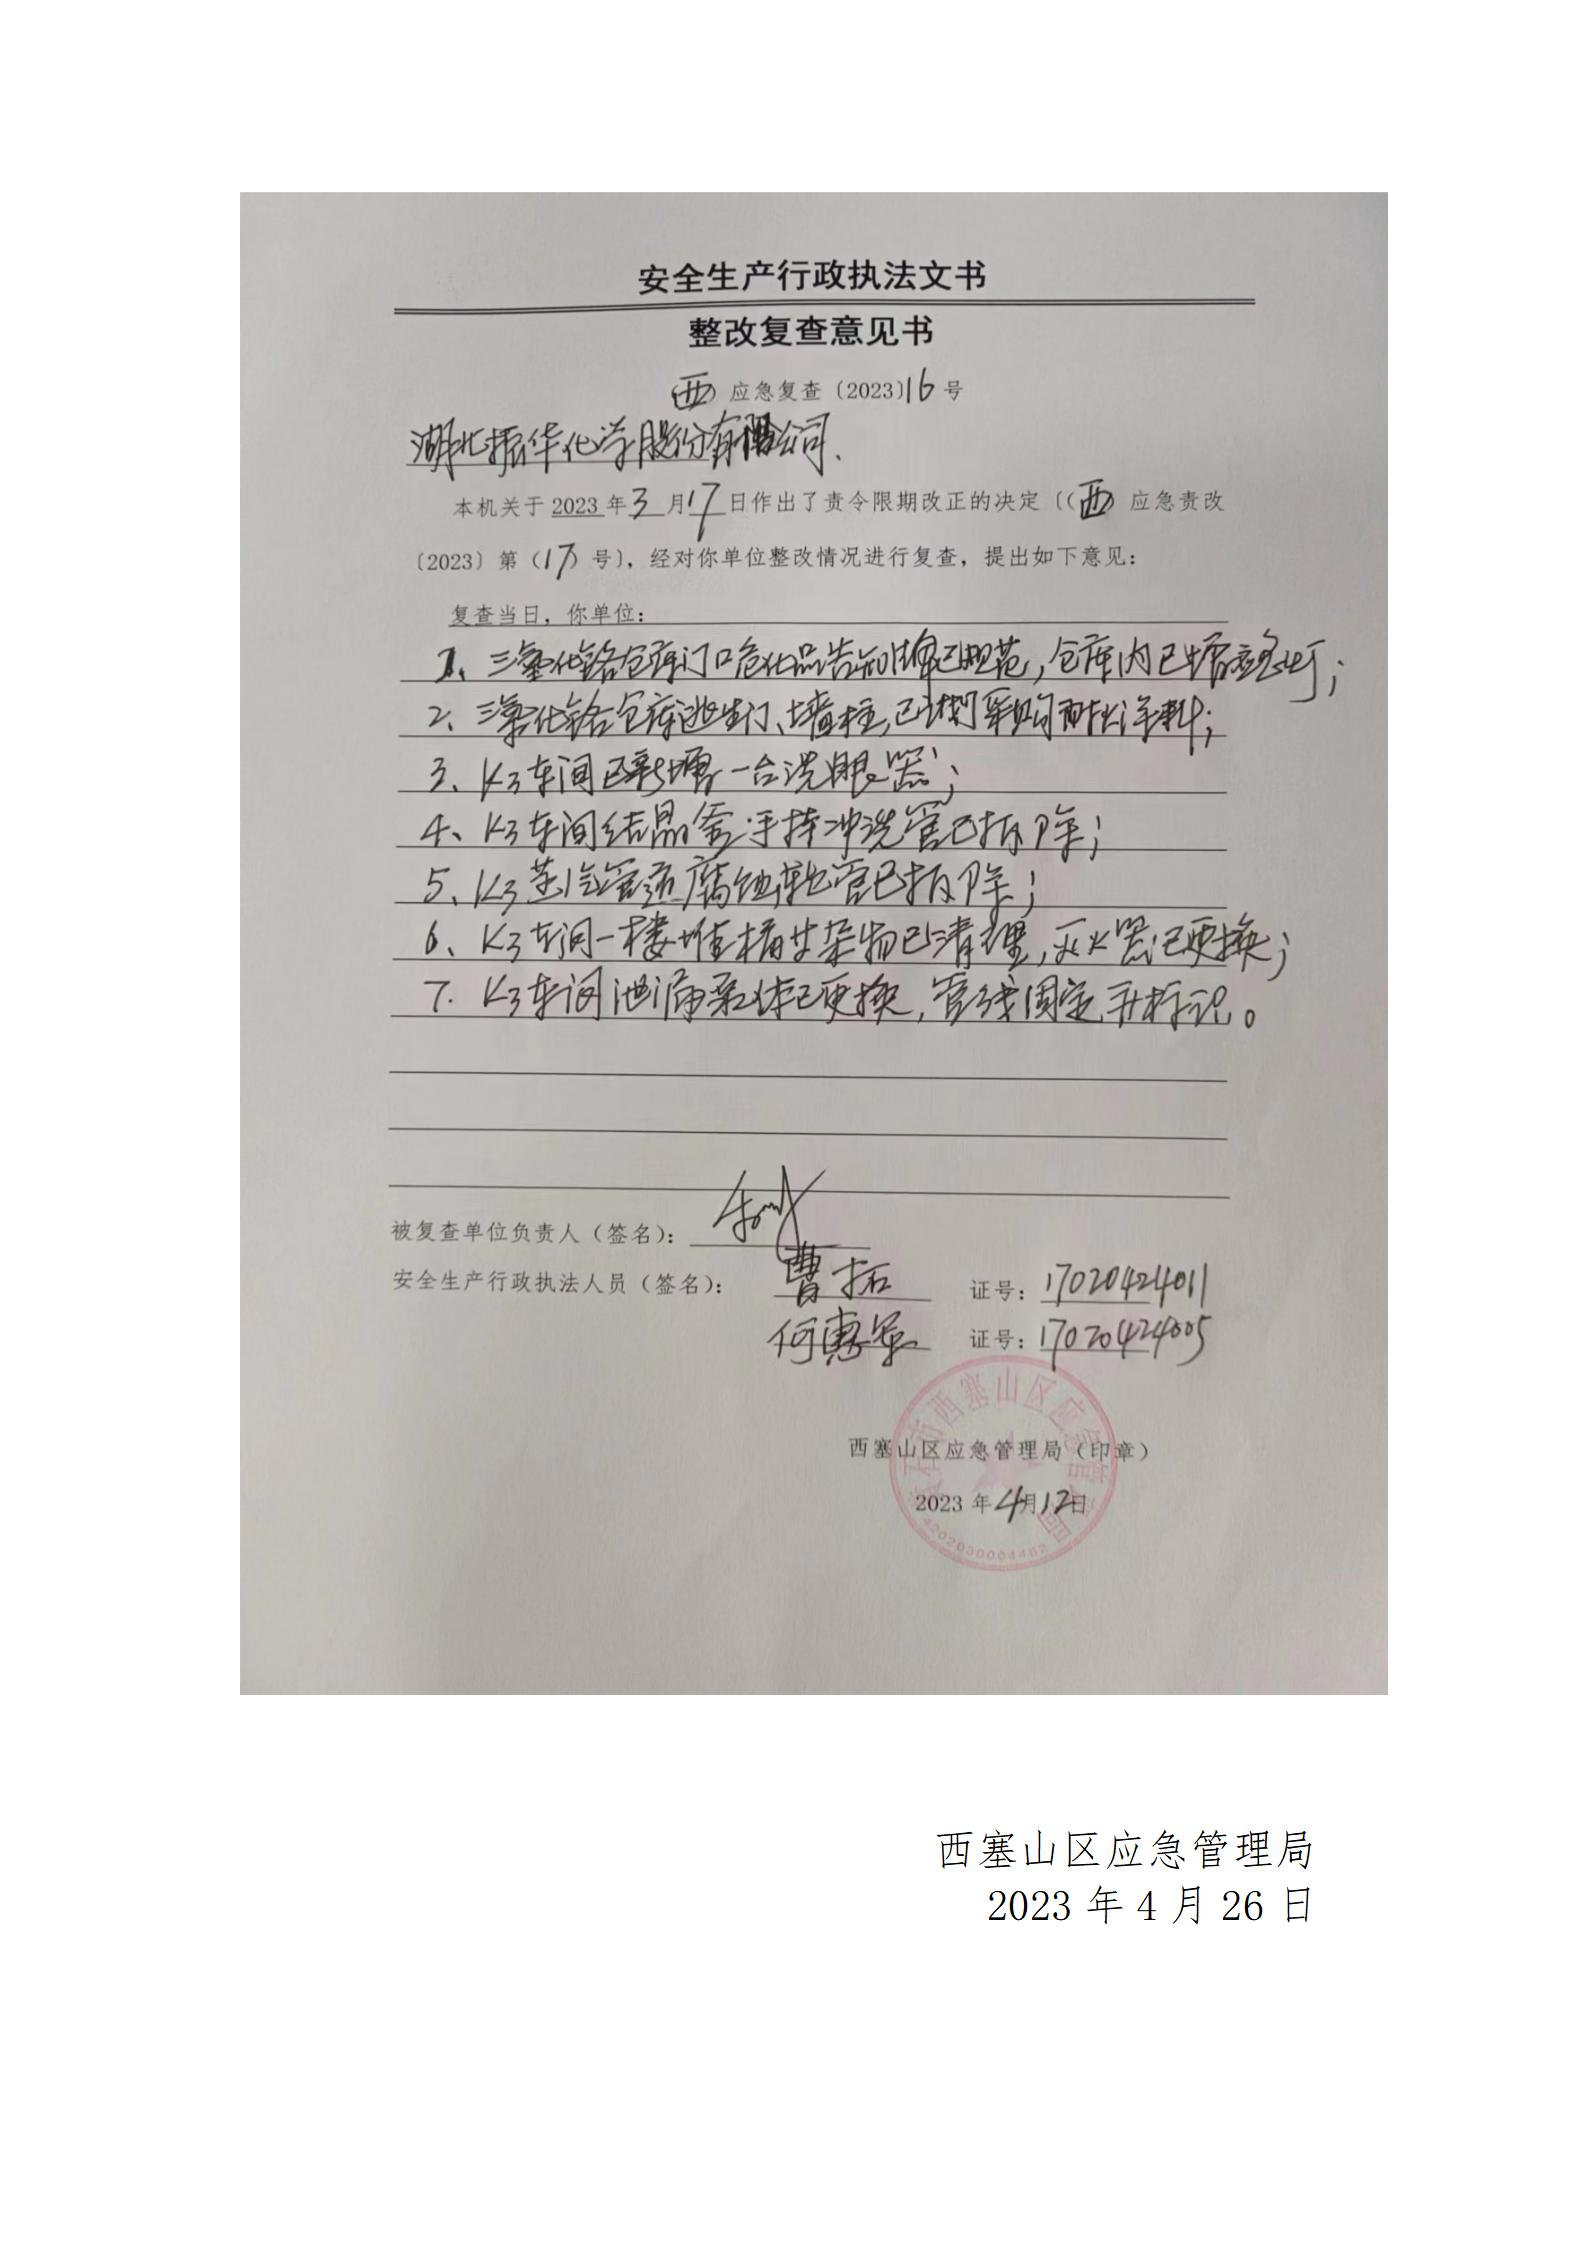 安全生产行政执法文书
整改复查意见书
（西）应急复查〔2023〕16号
湖北振华化学股份有限公司、
本机关于2023年3月17日作出了责令限期改正的决定〔（西）应急责改
〔2023〕第（17）号〕，经对你单位整改情况进行复查，提出如下意见：
复查当日，你单位：
1、三氧化铬仓库门口危化品告知牌已规范，仓库内已增应急灯；
2、三氧化铬仓库逃生门、墙柱，已计划采购耐火涂料；
3、K3车间已新增一台洗眼器；
4、K3车间结晶釜手持冲洗管已拆除；
5、K3蒸汽管道腐蚀软管已拆除；
6、K3车间一楼堆桶廿杂物已清理，灭火器已更换；
7、K3车间泄漏泵体已更换，管线固定并标识。
被复查单位负责人（签名）：
安全生产行政执法人员（签名）： 曹拓 证号：17020424011
何惠军 证号：17020424005
西塞山区应急管理局（印章）
2023年4月12日
黄石市西塞山区应急管理局
4202030004462
西塞山区应急管理局
2023年4月26日